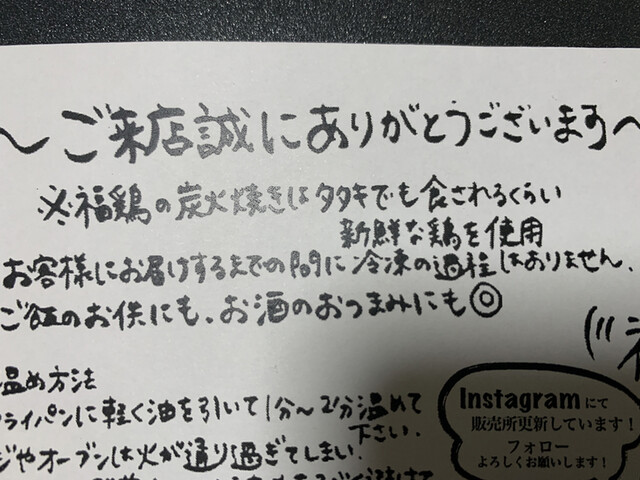 〜ご来店誠にありがとうございます〜
※福鶏の炭火焼きはタタキでも食されるくらい
新鮮な鶏を使用
お客様にお届けするまでの間に冷凍の過程はありません。
ご飯のお供にも、お酒のおつまみにも◎
温め方法
フライパンに軽く油を引いて1分〜2分温めて
下さい。
ジやオーブンは火が通り過ぎてしまい、
Instagramにて
販売所更新しています!
フォロー
よろしくお願いします!